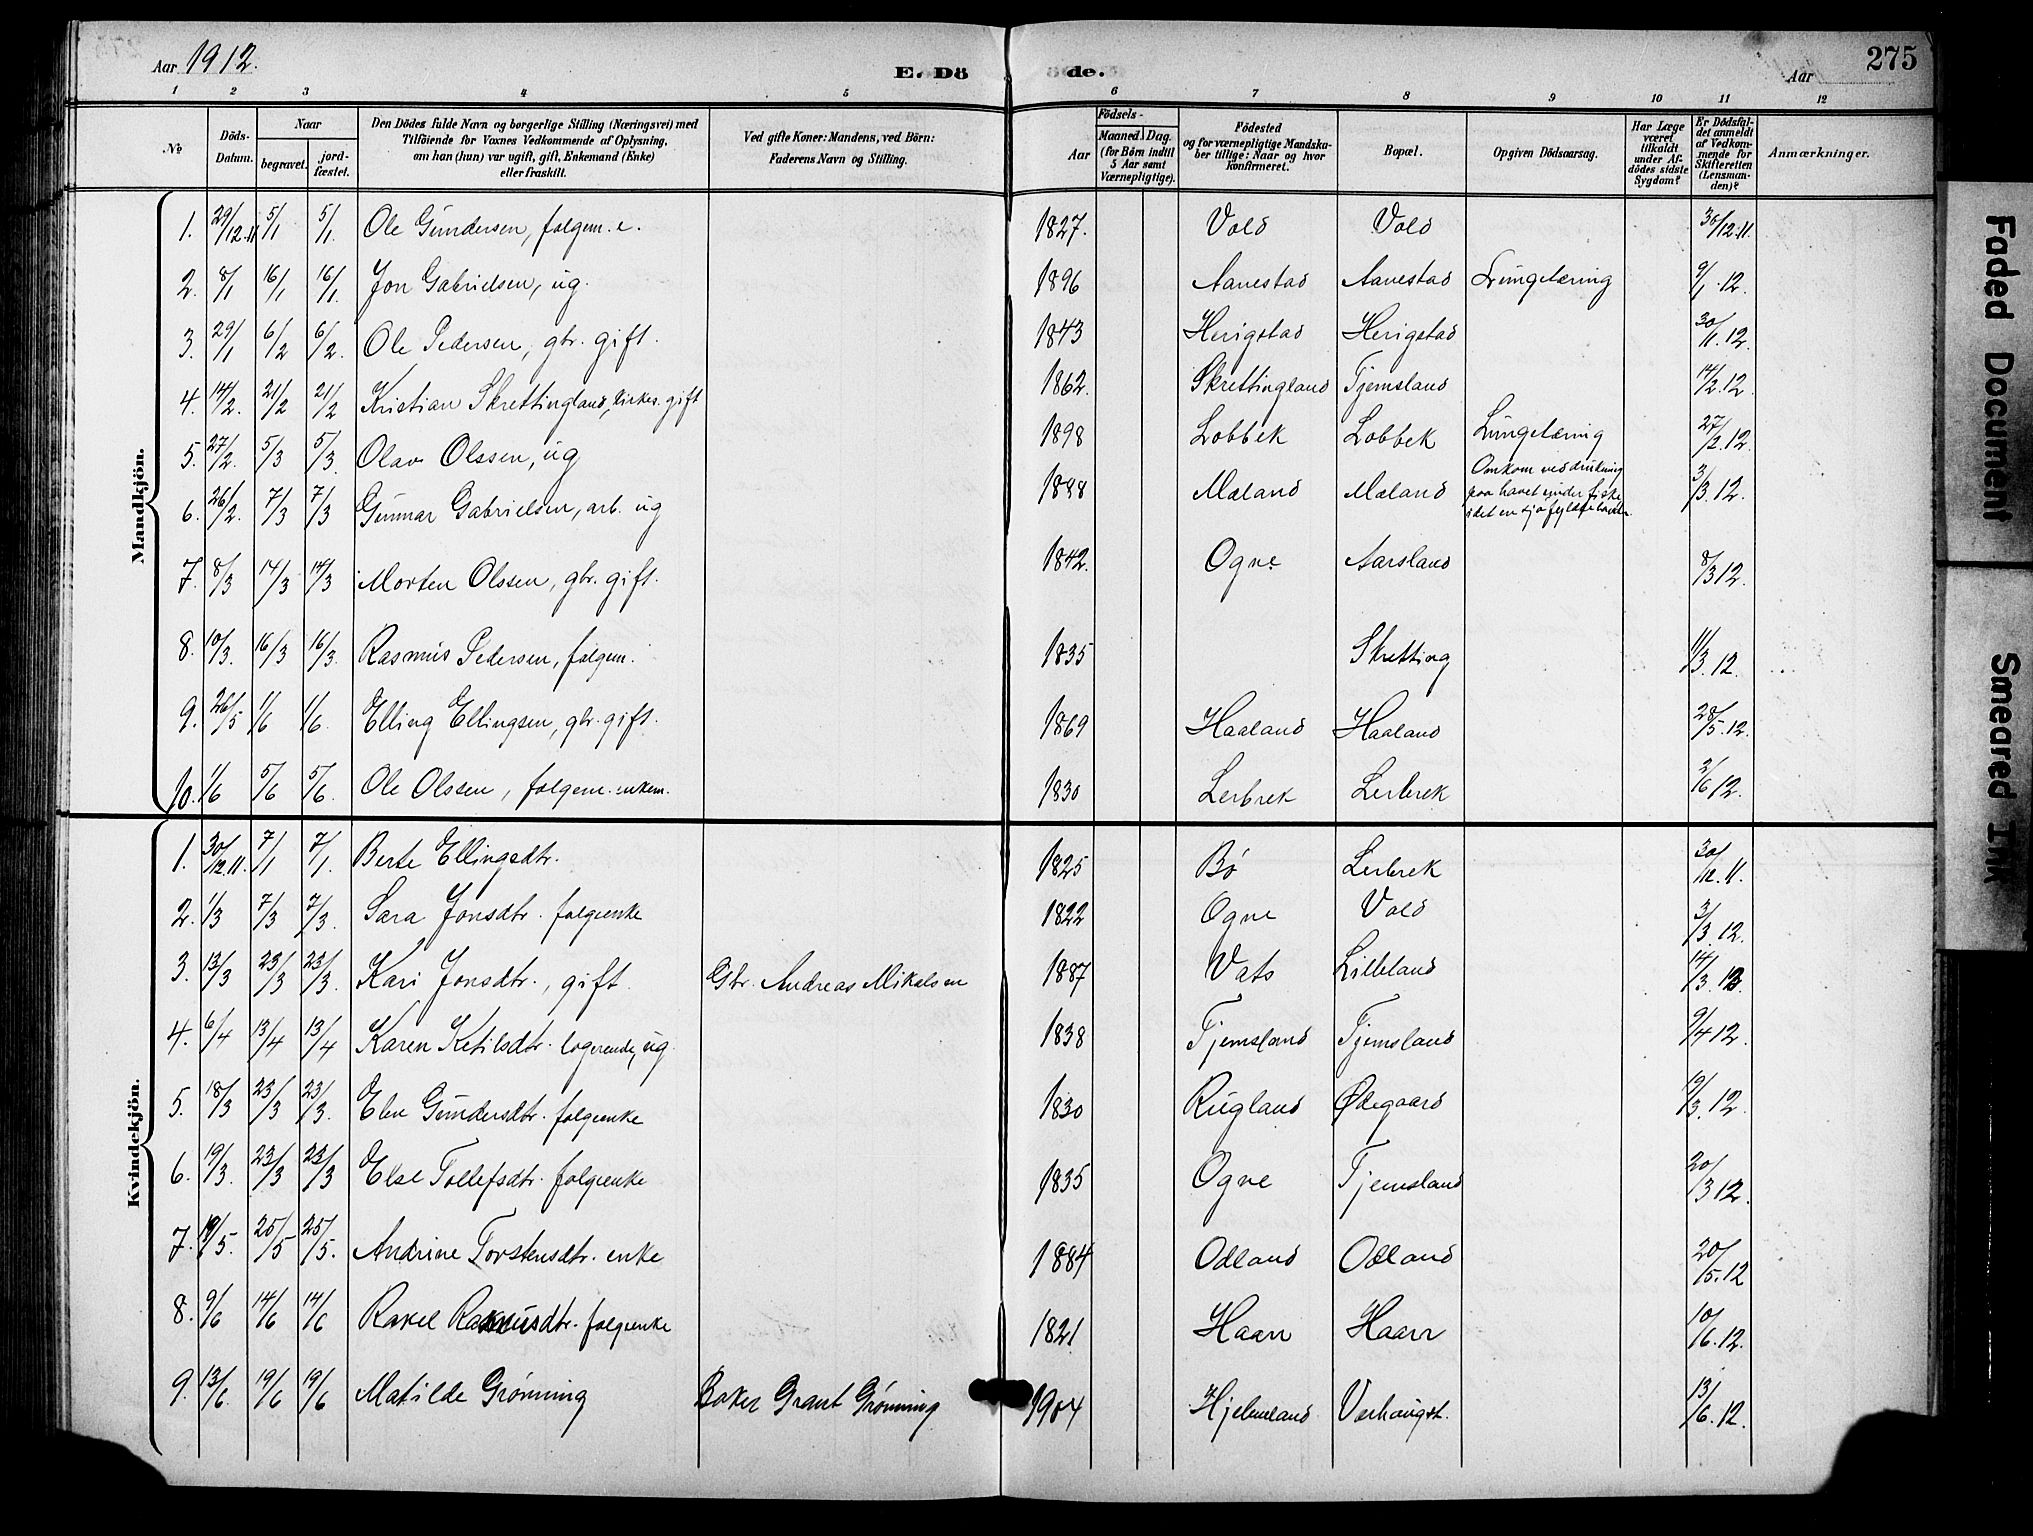 Aar 1912.
E. Dö
de.
Aar
275
1 2 3 4 5 6 7 8 9 10 11 12
№
Döds-Datum.
Naar
begravet.
jord-fæstet.
Den Dödes fulde Navn og borgerlige Stilling (Næringsvei) med
Tilföiende for Voxnes Vedkommende af Oplysning,
om han (hun) var ugift, gift, Enkemand (Enke)
eller fraskilt.
Ved gifte Koner: Mandens, ved Börn:
Faderens Navn og Stilling.
Födsels-
Aar
Maaned. Dag.
(for Börn indtil
5 Aar samt
Værnepligtige).
Födested
og for værnepligtige Mandska-
ber tillige: Naar og hvor
konfirmeret.
Bopæl.
Opgiven Dödsaarsag.
Har Læge
været
tilkaldt
under Af-
dödes sidste
Sygdom?
Er Dödsfal-
det anmeldt
af Vedkom-
mende for
Skifteretten
(Lensman-
den)?
Anmærkninger.
Mandkjön.
1. 29/12.11 5/1 5/1. Ole Gundersen, folgem. e. 1827. Vold Vold 30/12.11.
2. 8/1 16/1 16/1. Jon Gabrielsen, ug. 1896 Aanestad Aanestad Lungetæring 9/1.12.
3. 29/1 6/2 6/2. Ole Pedersen, gbr. gift. 1843 Herigstad Herigstad 30/1.12.
4. 14/2. 21/2 21/2 Kristian Skrettingland, kirkes. gift 1862. Skrettingland Tjemsland 14/2.12
5. 27/2. 5/3 5/3. Olav Olssen, ug 1898 Lobbek Lobbek Lungetæring 27/2.12
6. 26/2. 7/3 7/3 Gunnar Gabrielsen, arb. ug 1888 Mæland Mæland Omkom ved drukning
paa havet under fiske
idet en sjø fyldte baaden. 3/3.12.
7. 8/3 14/3 14/3 Morten Olssen, gbr. gift. 1842. Ogne Aarsland 8/3 12.
8. 10/3. 16/3 16/3. Rasmus Pedersen, folgem. 1835 Skretting 11/3.12.
9. 26/5 1/6 1/6. Elling Ellingsen, gbr. gift. 1869 Haaland Haaland 28/5.12.
10. 1/6 5/6 5/6. Ole Olssen, folgem. enkem. 1830 Lerbrek Lerbrek 2/6 12.
Kvindekjön.
1. 30/12.11. 7/1 7/1. Berte Ellingsdtr. 1825 Bø Lerbrek 30/12.11.
2. 1/3 7/3 7/3. Sara Jonsdtr. folgeenke 1822 Ogne Vold 3/3.12.
3. 13/3 23/3 23/3. Kari Jonsdtr., gift. Gbr. Andreas Mikalsen 1887 Vats Lilleland 14/3.12.
4. 6/4 13/4 13/4 Karen Ketilsdtr. logerende, ug. 1838 Tjemsland Tjemsland 9/4 12.
5. 18/3 23/3 23/3. Elen Gundersdtr. folgeenke 1830 Rugland Ødegaard 19/3.12.
6. 19/3. 23/3 23/3 Else Tollefsdtr. folgeenke 1835 Ogne Tjemsland 20/3 12.
7. 19/5. 25/5 25/5. Andrine Torstensdtr. enke 1884 Odland Odland 20/5.12
8. 9/6 14/6 14/6 Rakel Rasmusdtr. folgeenke 1821 Haarr Haarr 10/6.12.
9. 13/6. 19/6 19/6 Matilde Grønning Baker Grant Grønning 1904 Hjelmeland Varhaugst. 13/6.12.
Faded Document
Smeared Ink